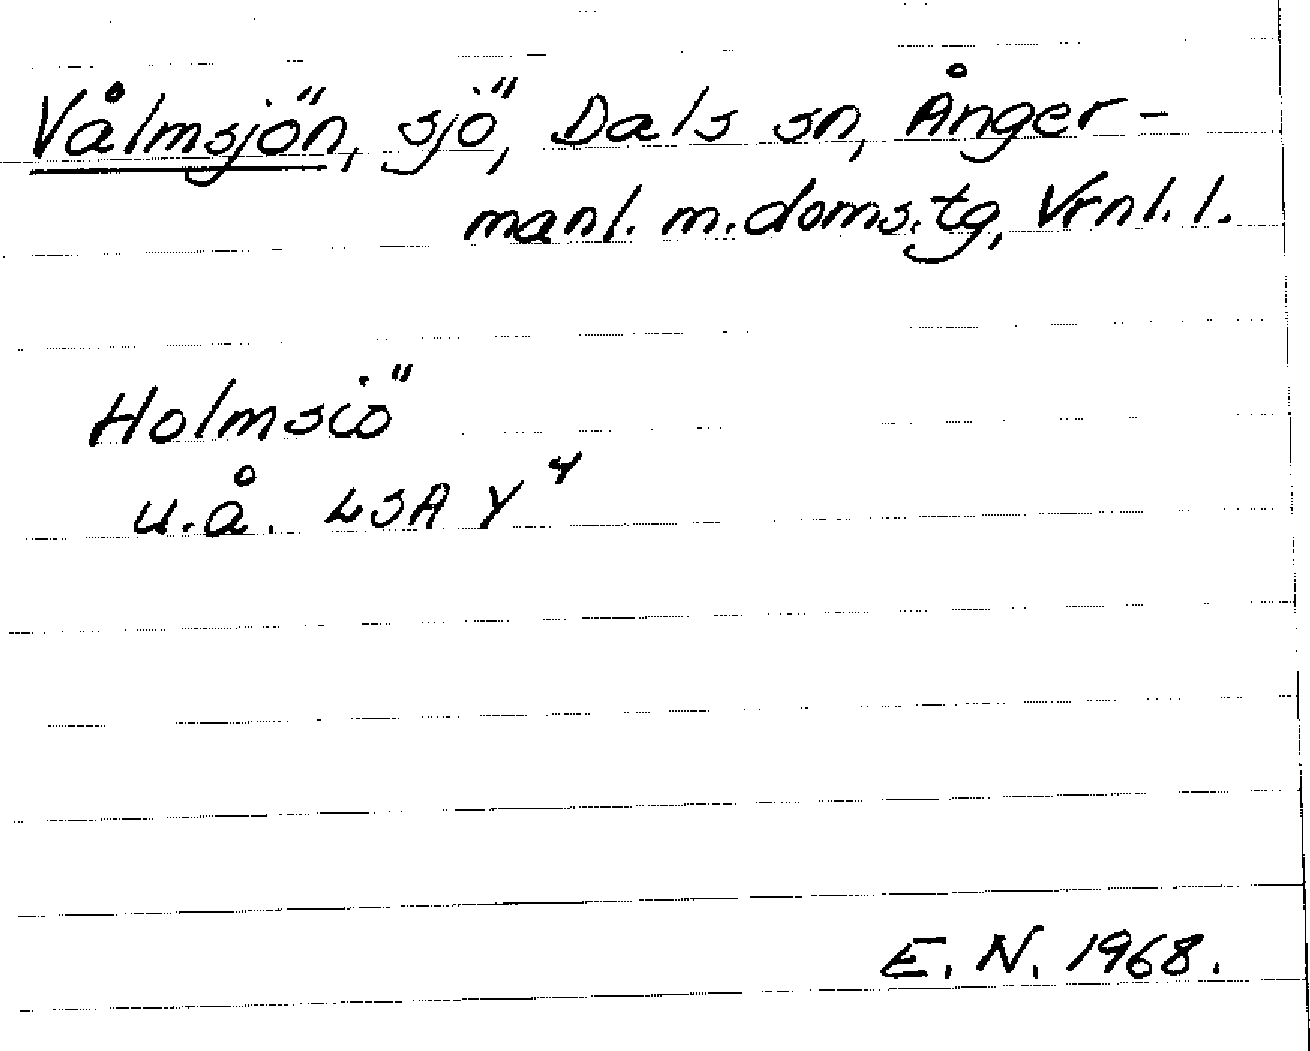 Vålmsjön, sjö, Dals sn, Ånger-
manl. m. doms.tg, Vrnl. l.
Holmsiö
u.å. LSA Y⁴
E. N. 1968.